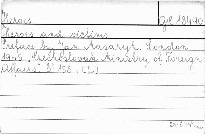 Heroes
Heroes and victims
Preface by Jan Masaryk. London
1945, Czechoslovak Ministry of Foreign
Affairs. 2° 158,